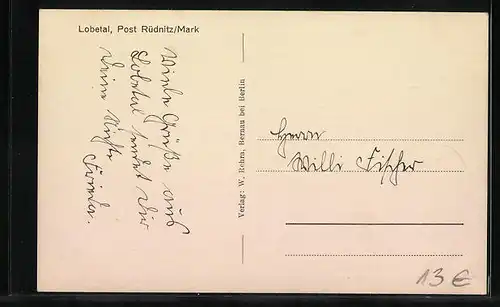 Lobetal, Post Rüdnitz/Mark
Viele Grüße aus
Lobetal sendet Dir
Deine Nichte
Frieda.
Verlag: W. Rohrn, Bernau bei Berlin
Herrn
Willi Fischer
13 €